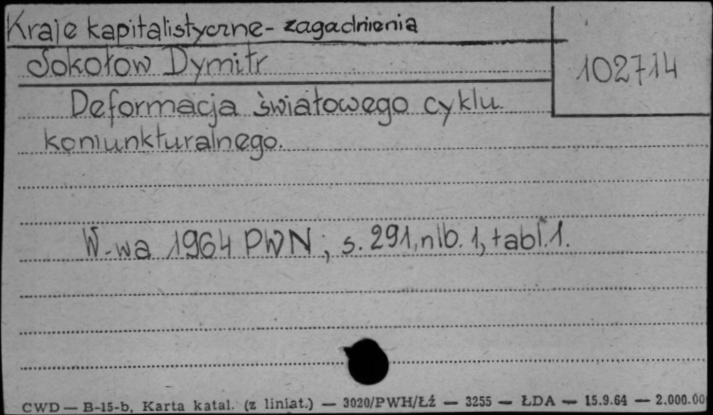 Kraje kapitalistyczne - zagadnienia
Sokołow Dymitr
102714
Deformacja światowego cyklu
koniunkturalnego.
W-wa 1964 PWN, s. 291, nlb. 1, tabl. 1.
CWD — B-15-b, Karta katal. (z liniat.) — 3020/PWH/Łź — 3255 — ŁDA — 15.9.64 — 2.000.00